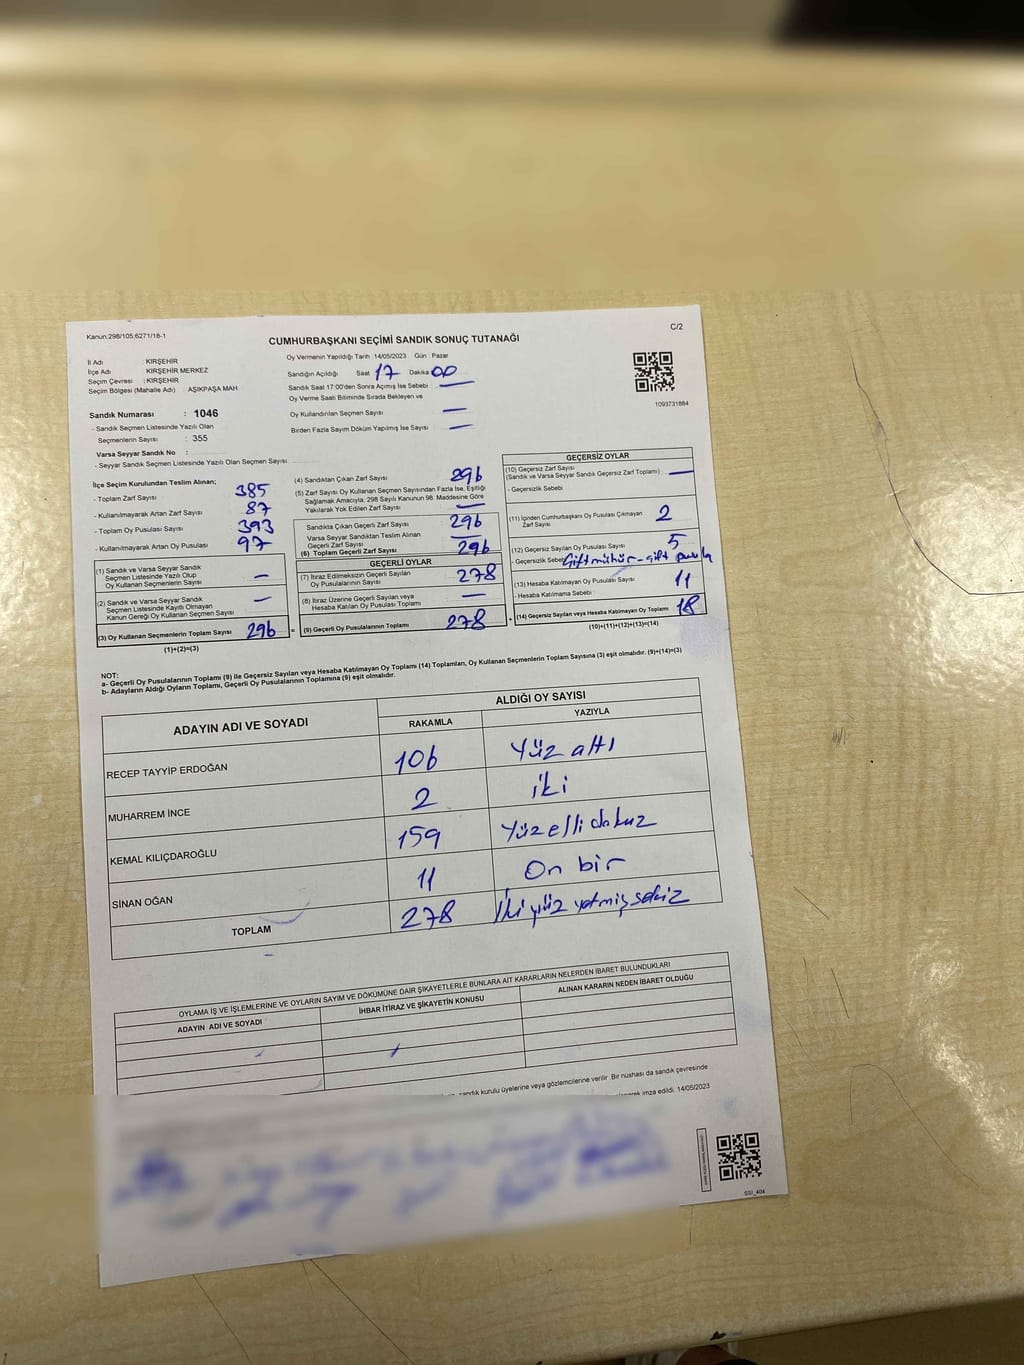 Kanun.298/105;6271/18-1
C/2
CUMHURBAŞKANI SEÇİMİ SANDIK SONUÇ TUTANAĞI
İl Adı : KIRŞEHİR
İlçe Adı : KIRŞEHİR MERKEZ
Seçim Çevresi : KIRŞEHİR
Seçim Bölgesi (Mahalle Adı) AŞIKPAŞA MAH.
Sandık Numarası : 1046
- Sandık Seçmen Listesinde Yazılı Olan
Seçmenlerin Sayısı : 355
Varsa Seyyar Sandık No :
- Seyyar Sandık Seçmen Listesinde Yazılı Olan Seçmen Sayısı
Oy Vermenin Yapıldığı Tarih 14/05/2023 Gün : Pazar
Sandığın Açıldığı Saat 17 Dakika 00
Sandık Saat 17:00'den Sonra Açımış İse Sebebi —
Oy Verme Saati Bitiminde Sırada Bekleyen ve
Oy Kullandırılan Seçmen Sayısı —
Birden Fazla Sayım Döküm Yapılmış İse Sayısı —
1093731884
İlçe Seçim Kurulundan Teslim Alınan;
- Toplam Zarf Sayısı 385
- Kullanılmayarak Artan Zarf Sayısı 87
- Toplam Oy Pusulası Sayısı 393
- Kullanılmayarak Artan Oy Pusulası 97
(1) Sandık ve Varsa Seyyar Sandık
Seçmen Listesinde Yazılı Olup
Oy Kullanan Seçmenlerin Sayısı —
(2) Sandık ve Varsa Seyyar Sandık
Seçmen Listesinde Kayıtlı Olmayan
Kanun Gereği Oy Kullanan Seçmen Sayısı —
(3) Oy Kullanan Seçmenlerin Toplam Sayısı 296 =
(1)+(2)=(3)
(4) Sandıktan Çıkan Zarf Sayısı 296
(5) Zarf Sayısı Oy Kullanan Seçmen Sayısından Fazla İse, Eşitliği
Sağlamak Amacıyla; 298 Sayılı Kanunun 98. Maddesine Göre
Yakılarak Yok Edilen Zarf Sayısı —
Sandıkta Çıkan Geçerli Zarf Sayısı 296
Varsa Seyyar Sandıktan Teslim Alınan
Geçerli Zarf Sayısı —
(6) Toplam Geçerli Zarf Sayısı 296
GEÇERLİ OYLAR
(7) İtiraz Edilmeksizin Geçerli Sayılan
Oy Pusulalarının Sayısı 278
(8) İtiraz Üzerine Geçerli Sayılan veya
Hesaba Katılan Oy Pusulası Toplamı —
(9) Geçerli Oy Pusulalarının Toplamı 278 +
GEÇERSİZ OYLAR
(10) Geçersiz Zarf Sayısı
(Sandık ve Varsa Seyyar Sandık Geçersiz Zarf Toplamı) —
- Geçersizlik Sebebi
(11) İçinden Cumhurbaşkanı Oy Pusulası Çıkmayan
Zarf Sayısı 2
(12) Geçersiz Sayılan Oy Pusulası Sayısı 5
- Geçersizlik Sebebi Çift mühür - çift pusula
(13) Hesaba Katılmayan Oy Pusulası Sayısı 11
- Hesaba Katılmama Sebebi
(14) Geçersiz Sayılan veya Hesaba Katılmayan Oy Toplamı 18
(10)+(11)+(12)+(13)=(14)
NOT:
a- Geçerli Oy Pusulalarının Toplamı (9) ile Geçersiz Sayılan veya Hesaba Katılmayan Oy Toplamı (14) Toplamları, Oy Kullanan Seçmenlerin Toplam Sayısına (3) eşit olmalıdır. (9)+(14)=(3)
b- Adayların Aldığı Oyların Toplamı, Geçerli Oy Pusulalarının Toplamına (9) eşit olmalıdır.
ADAYIN ADI VE SOYADI
ALDIĞI OY SAYISI
RAKAMLA YAZIYLA
RECEP TAYYİP ERDOĞAN 106 Yüz altı
MUHARREM İNCE 2 iki
KEMAL KILIÇDAROĞLU 159 Yüz elli dokuz
SİNAN OĞAN 11 On bir
TOPLAM 278 İki yüz yetmiş sekiz
OYLAMA İŞ VE İŞLEMLERİNE VE OYLARIN SAYIM VE DÖKÜMÜNE DAİR ŞİKAYETLERLE BUNLARA AİT KARARLARIN NELERDEN İBARET BULUNDUKLARI
ADAYIN ADI VE SOYADI İHBAR İTİRAZ VE ŞİKAYETİN KONUSU ALINAN KARARIN NEDEN İBARET OLDUĞU
sandık kurulu üyelerine veya gözlemcilerine verilir. Bir nüshası da sandık çevresinde
imza edildi. 14/05/2023
SSİ_404